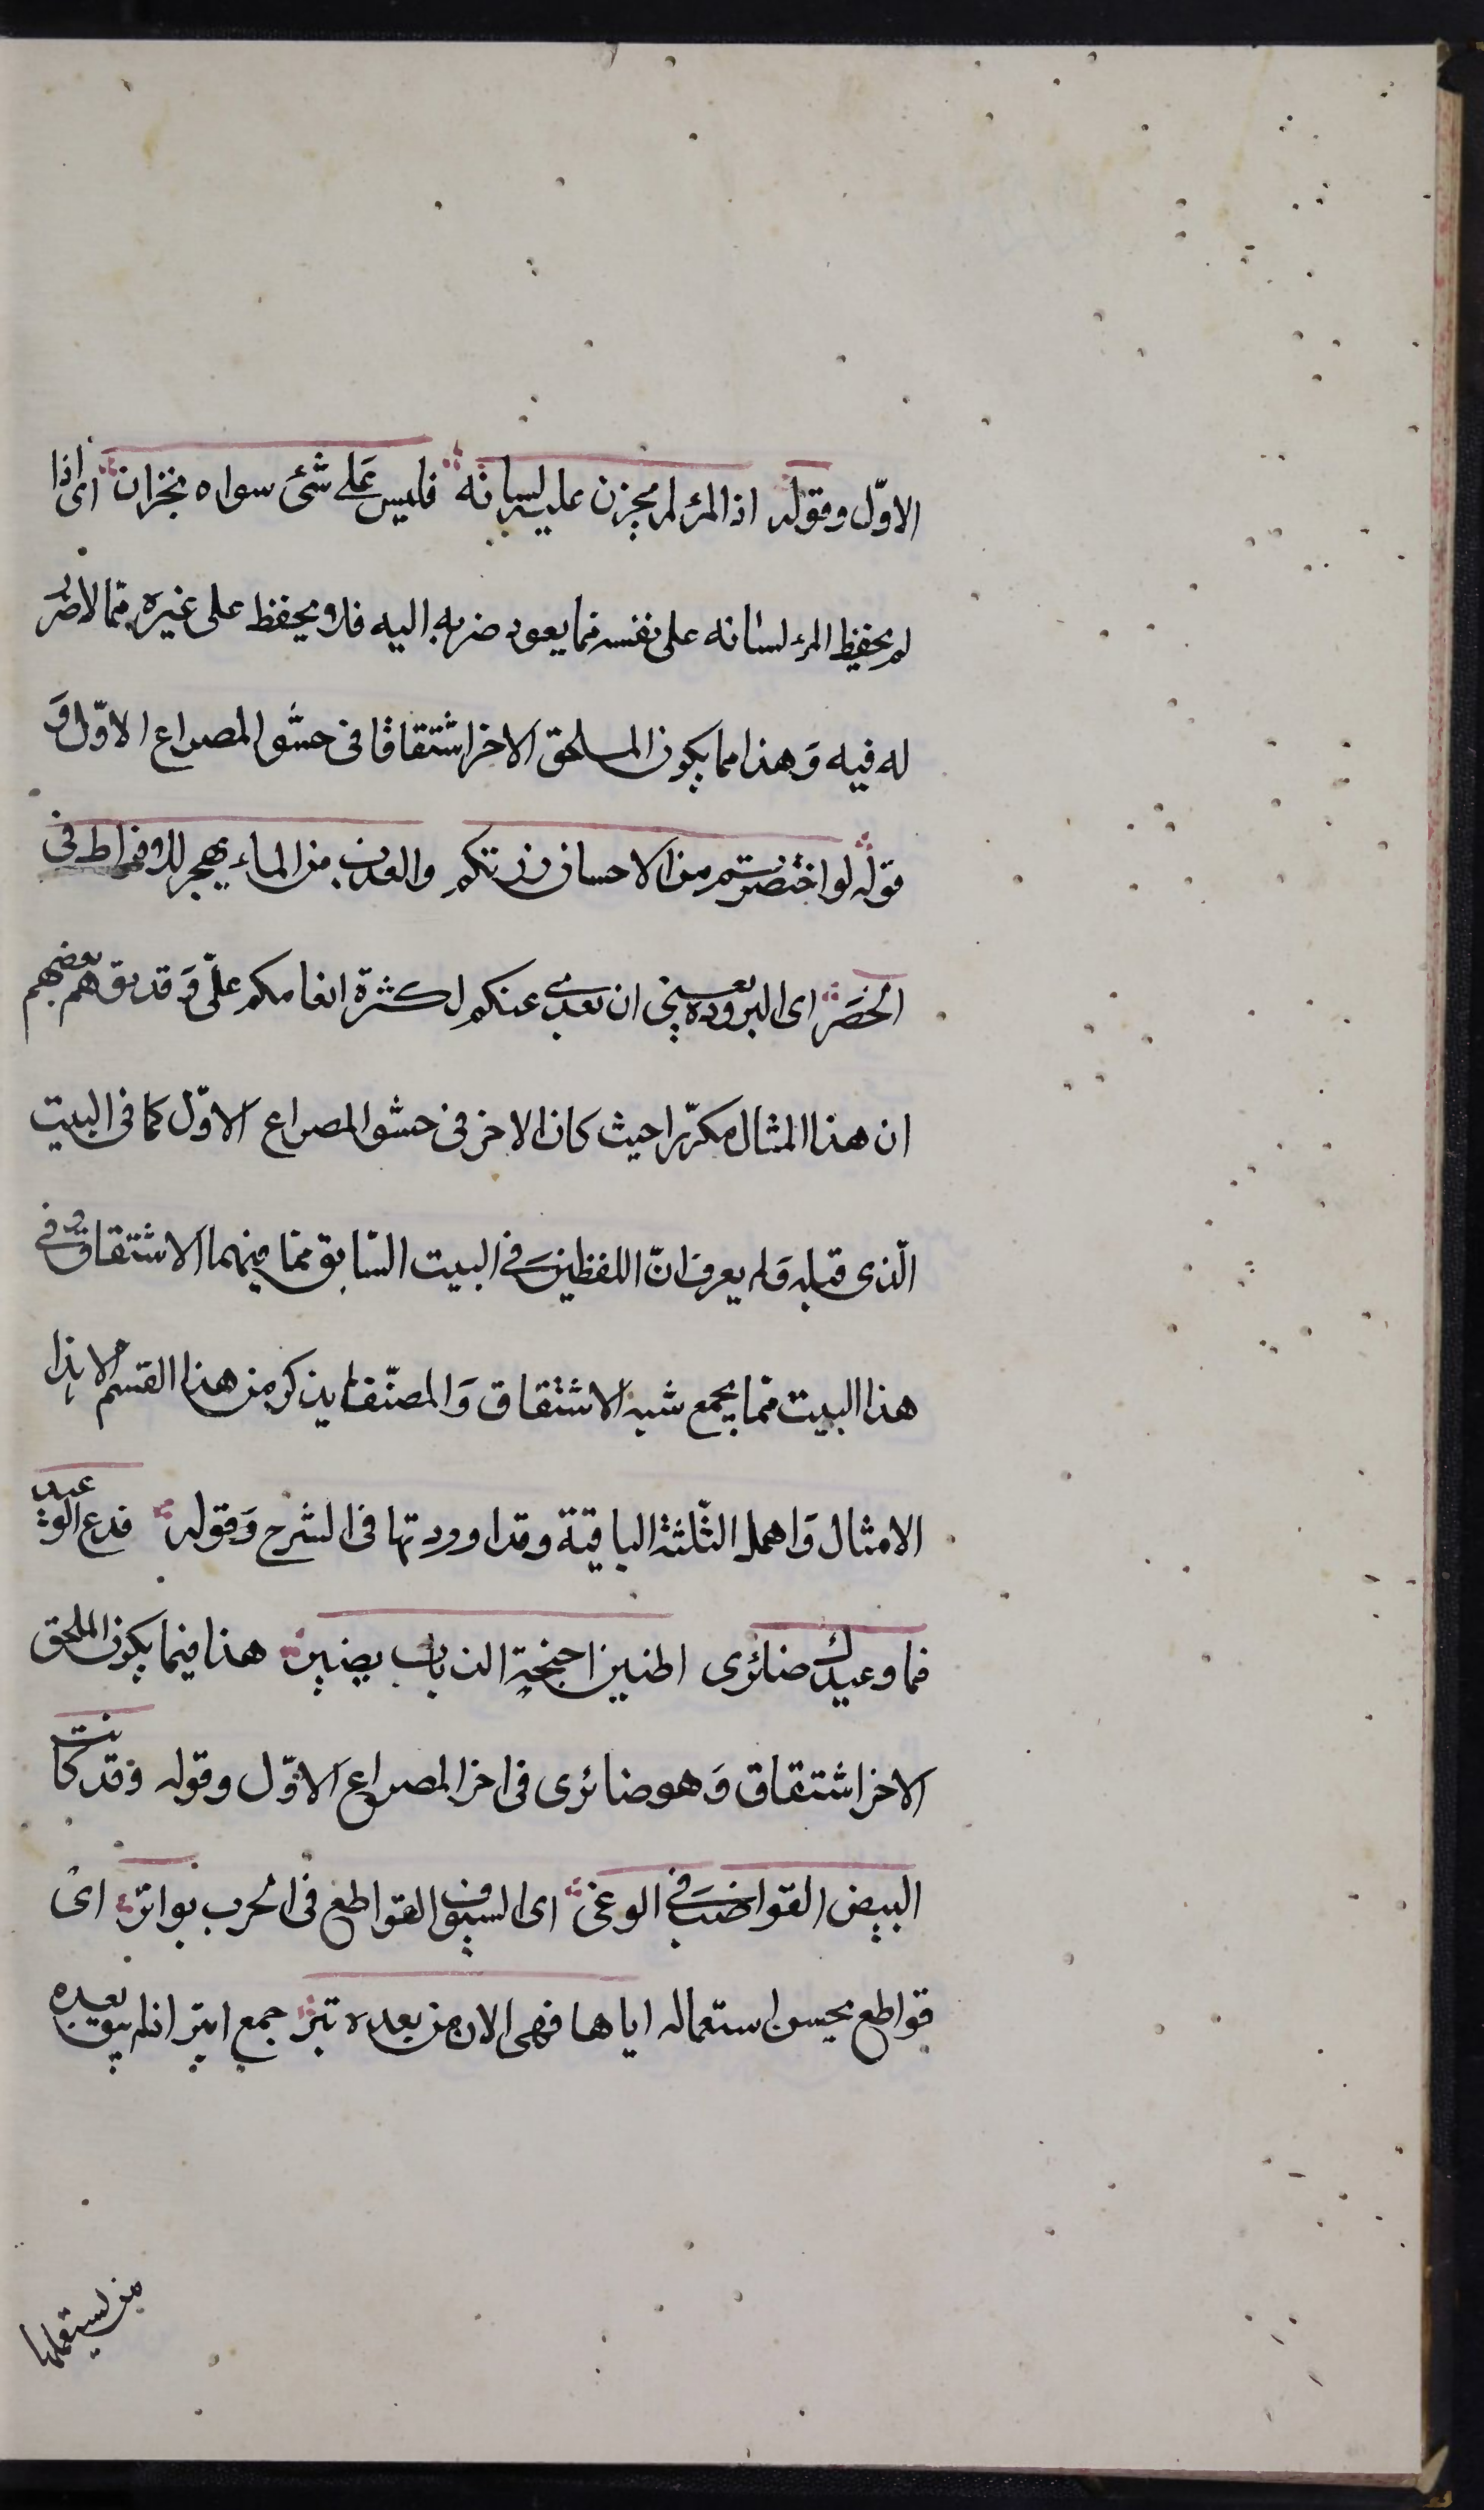 الاوّل وقوله اذا المرء لم يخزن عليه لسانه فليس عَلى شئ سواه بخزان اى اذا
لم يحفظ المرء لسانه على نفسه مما يعود ضرره اليه فلا يحفظ على غيره مما لا ضرر
له فيه وَهذا مما يكون الملحق الاخر اشتقاقا فى حشو المصراع الاوّل وَ
قوله لو اختصرتم من الاحسان زرتكم والعذب من الماء يهجر للافراط فى
الخصَر اى البرودة يعنى ان بعدى عنكم لكثرة انعامكم علىّ وَقد توهّم بعضهم
ان هذا المثال مكرّر احيث كان الاخر فى حشو المصراع الاوّل كما فى البيت
الّذى قبله وَلم يعرف انّ اللفظين فى البيت السّابق مما بينهما الاشتقاق وفى
هذا البيت مما يجمع شبه الاشتقاق وَالمصنّف لم يذكر من هذا القسم الا هذا
الامثال وَاهمل الثّلثة الباقية وقد اوردتها فى الشرح وَقوله فدع الوعيد
فما وعيدك ضائرى اطنين اجنحة الذباب يضير هذا فيما يكون الملحق
الاخر اشتقاق وَهو ضائرى فى اخر المصراع الاوّل وقوله وقد كانت
البيض القواضب فى الوغى اى السيوف القواطع فى الحرب بواتر اى
قواطع بحسن استعماله اياها فهى الان من بعده بتر جمع ابتر اذ لم يبق بعده
من يستعملها